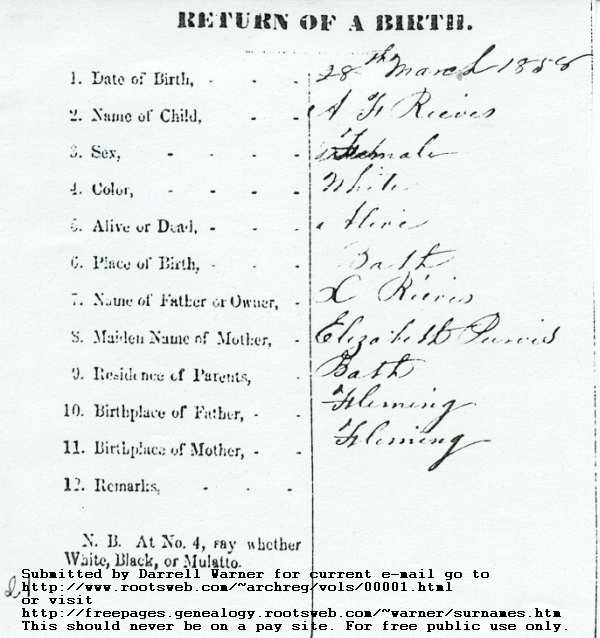 RETURN OF A BIRTH.
1. Date of Birth, - - - 28th March 1858
2. Name of Child, - - A F Reeves
3. Sex, - - - - Female
4. Color, - - - - White
5. Alive or Dead, - - - Alive
6. Place of Birth, - - - Bath
7. Name of Father or Owner, - Reeves
8. Maiden Name of Mother, - Elizabeth Purvis
9. Residence of Parents, - Bath
10. Birthplace of Father, - - Fleming
11. Birthplace of Mother, - - Fleming
12. Remarks, - - -
N. B. At No. 4, say whether
White, Black, or Mulatto.
Submitted by Darrell Warner for current e-mail go to
http://www.rootsweb.com/~archreg/vols/00001.html
or visit
http://freepages.genealogy.rootsweb.com/~warner/surnames.htm
This should never be on a pay site. For free public use only.